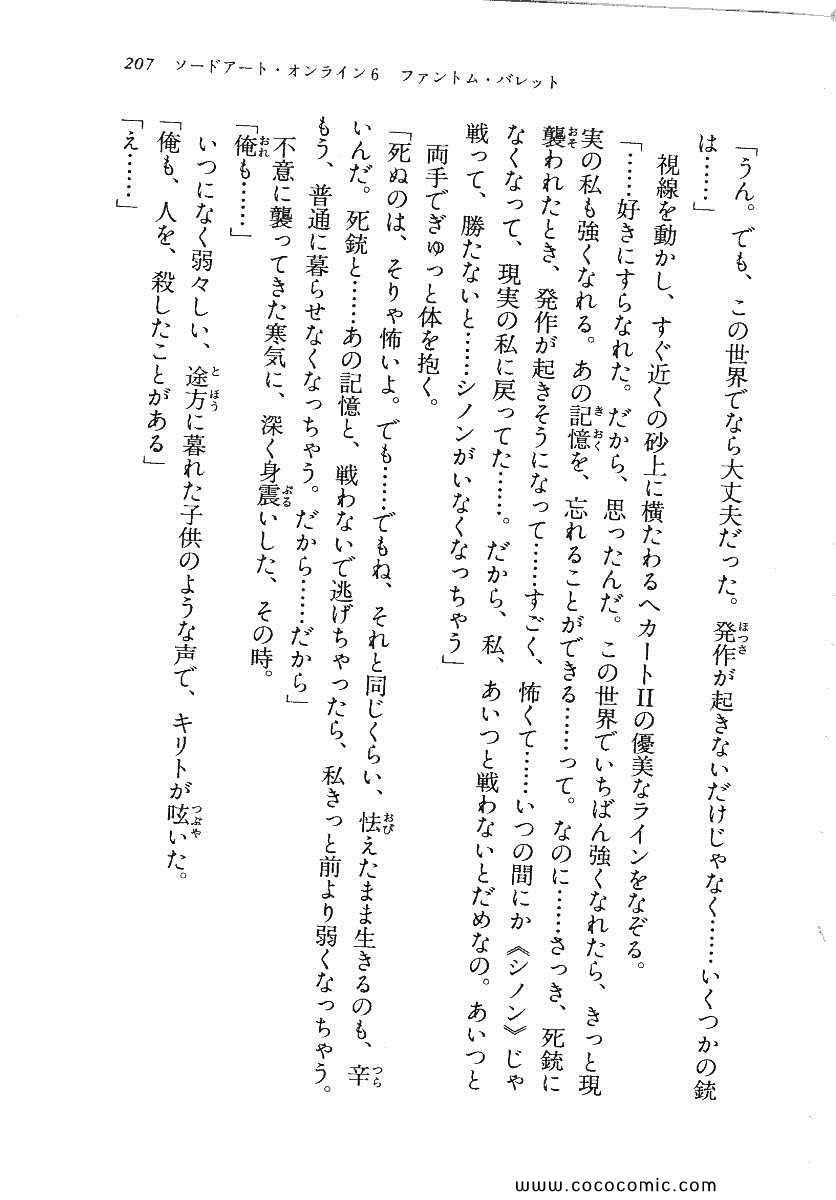 207 ソードアート・オンライン6 ファントム・バレット
「うん。でも、この世界でなら大丈夫だった。発作が起きないだけじゃなく……いくつかの銃
は……」
視線を動かし、すぐ近くの砂上に横たわるヘカートIIの優美なラインをなぞる。
「……好きにすらなれた。だから、思ったんだ。この世界でいちばん強くなれたら、きっと現
実の私も強くなれる。あの記憶を、忘れることができる……って。なのに……さっき、死銃に
襲われたとき、発作が起きそうになって……すごく、怖くて……いつの間にか《シノン》じゃ
なくなって、現実の私に戻ってた……。だから、私、あいつと戦わないとだめなの。あいつと
戦って、勝たないと……シノンがいなくなっちゃう」
両手でぎゅっと体を抱く。
「死ぬのは、そりゃ怖いよ。でも……でもね、それと同じくらい、怯えたまま生きるのも、辛
いんだ。死銃と……あの記憶と、戦わないで逃げちゃったら、私きっと前より弱くなっちゃう。
もう、普通に暮らせなくなっちゃう。だから……だから」
不意に襲ってきた寒気に、深く身震いした、その時。
「俺も……」
いつになく弱々しい、途方に暮れた子供のような声で、キリトが呟いた。
「俺も、人を、殺したことがある」
「え……」
www.cococomic.com